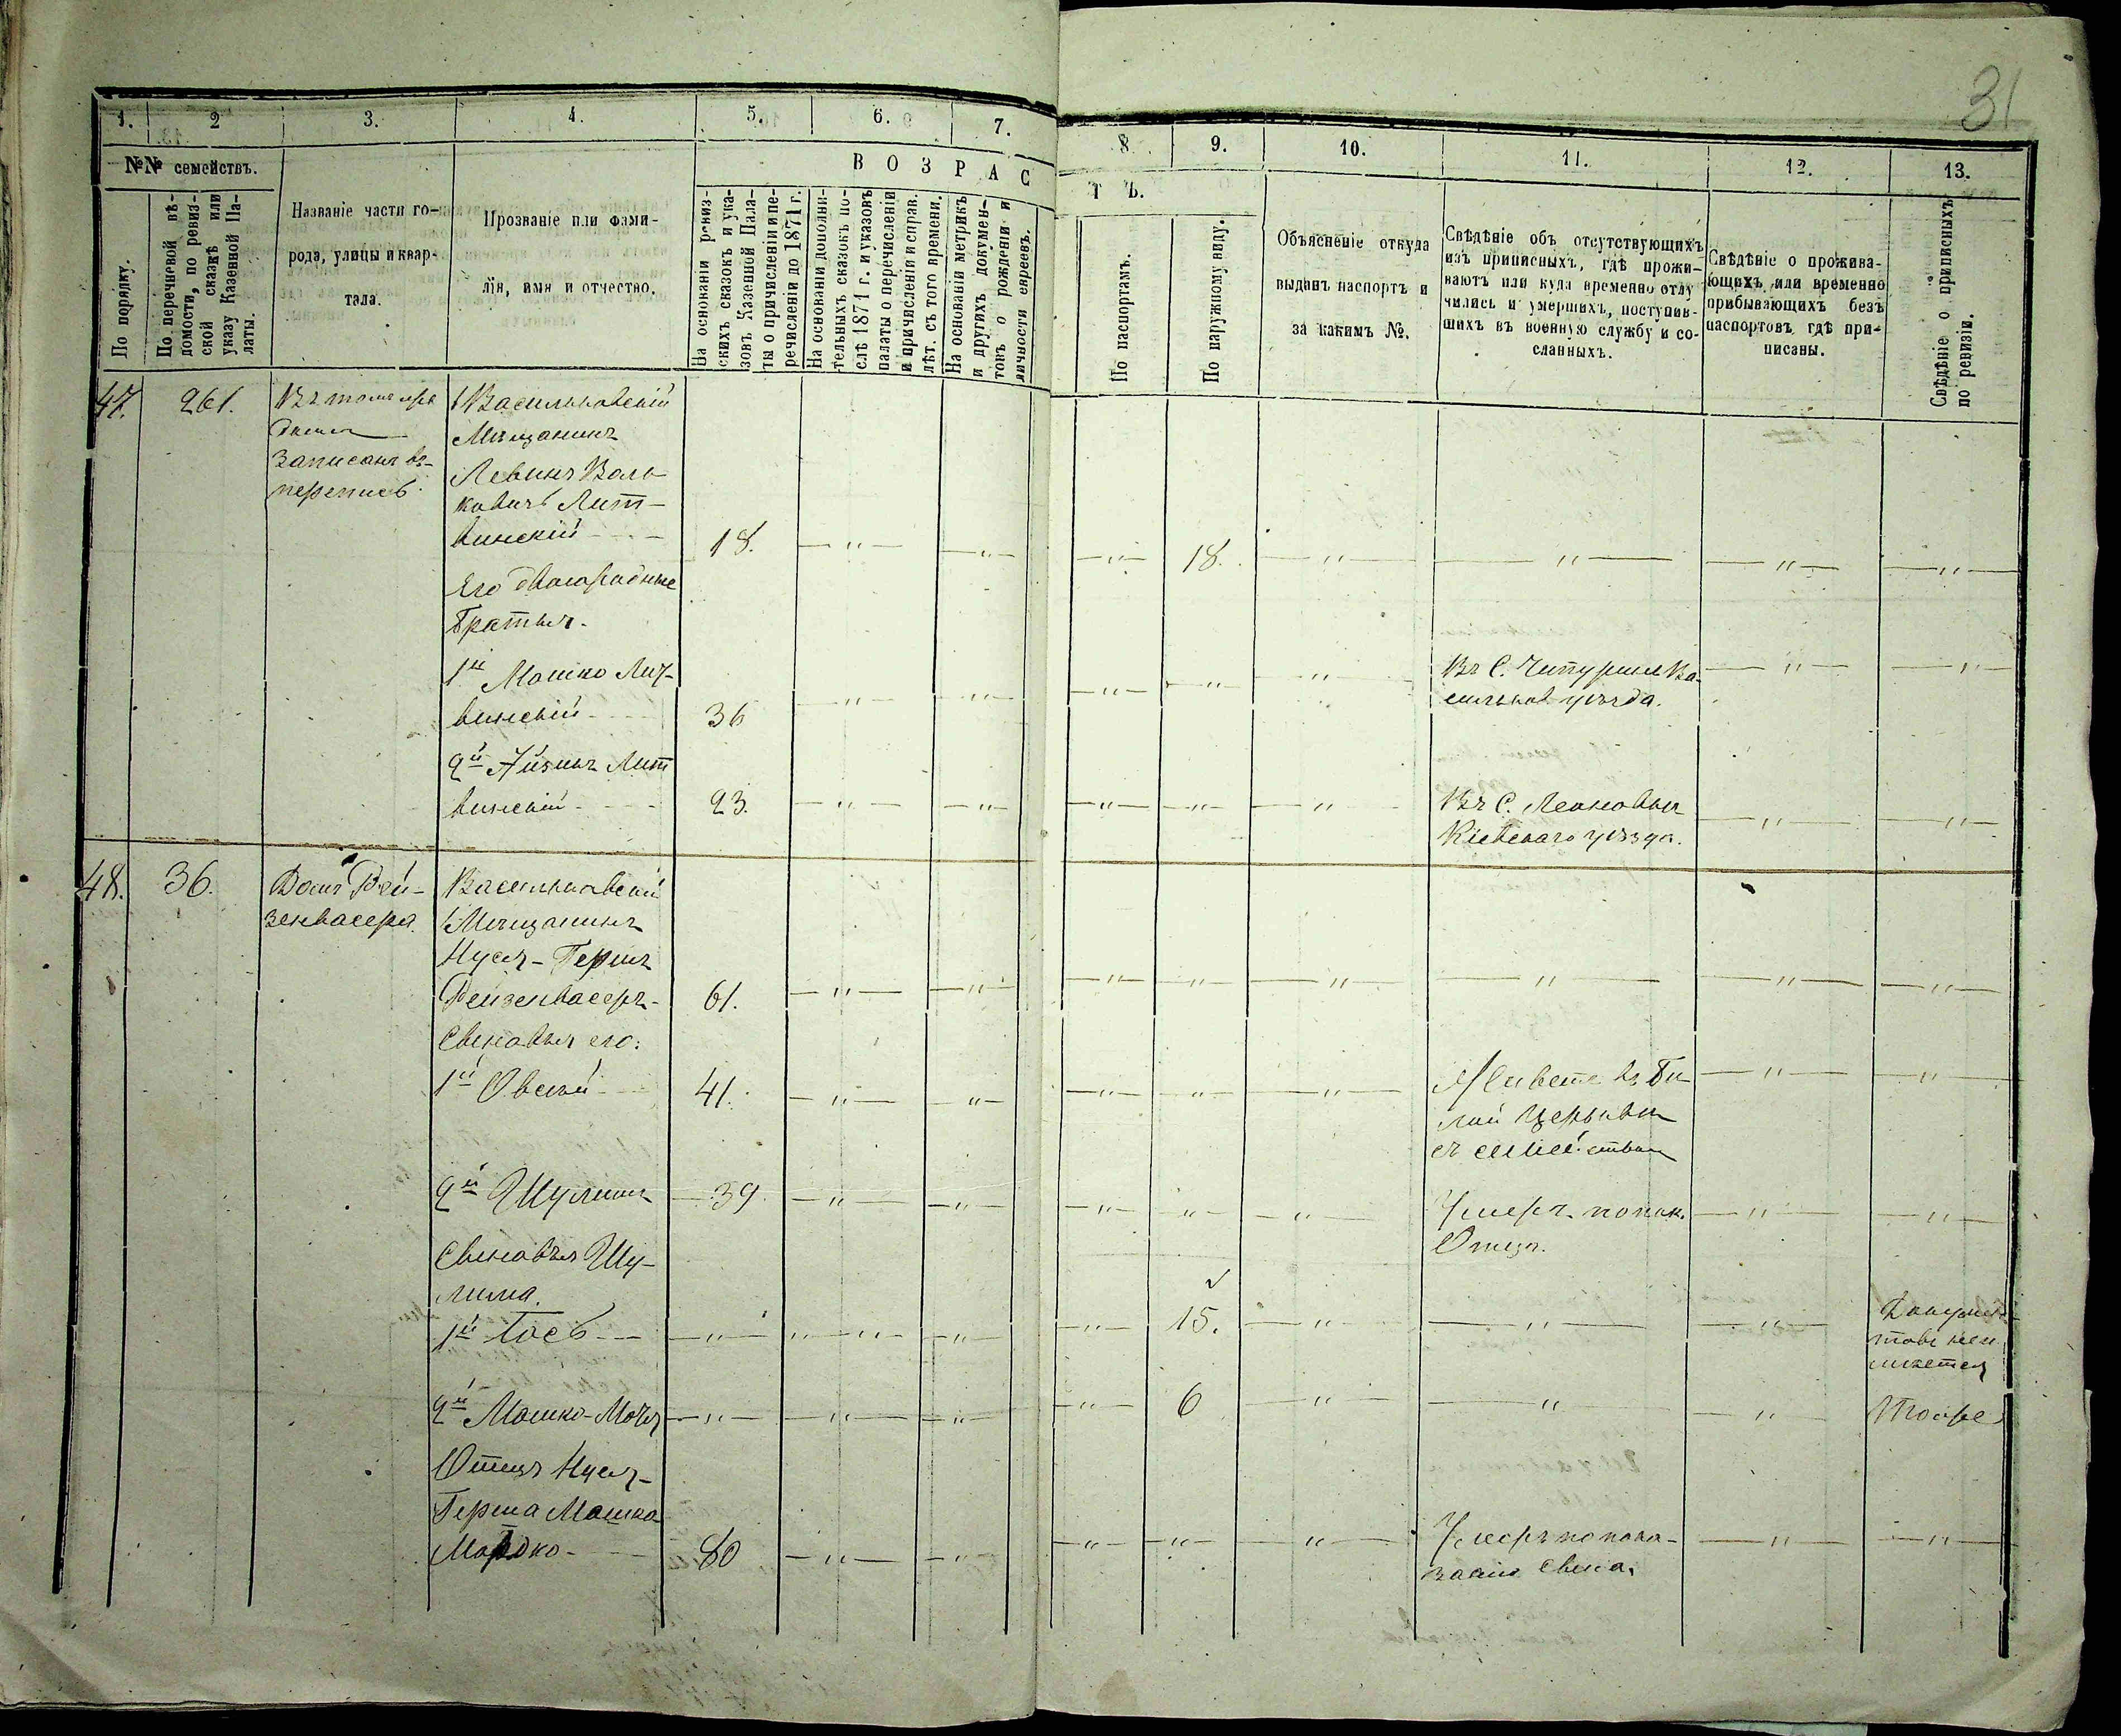 31
1.
2
3.
4.
5.
6.
7.
8.
9.
10.
11.
12.
13.
№№ семействъ.
По порядку.
По перечневой вѣ-
домости, по ревиз-
ской сказкѣ или
указу Казенной Па-
латы.
Названіе части го-
рода, улицы и квар-
тала.
Прозваніе или фами-
лія, имя и отчество.
ВОЗРАС
ТЪ.
На основаніи ревиз-
скихъ сказокъ и ука-
зовъ Казенной Пала-
ты о причисленіи и пе-
речисленіи до 1871 г.
На основаніи дополни-
тельныхъ сказокъ по-
слѣ 1871 г. и указовъ
палаты о перечисленіи
и причисленіи и справ.
лѣт. съ того времени.
На основаніи метрикъ
и другихъ докумен-
товъ о рожденіи и
личности евреевъ.
По паспортамъ.
По наружному виду.
Объясненіе откуда
выданъ паспортъ и
за какимъ №.
Свѣдѣніе объ отсутствующихъ
изъ приписныхъ, гдѣ прожи-
ваютъ или куда временно отлу
чились и умершихъ, поступив-
шихъ въ военную службу и со-
сланныхъ.
Свѣдѣніе о прожива-
ющихъ или временно
прибывающихъ безъ
паспортовъ гдѣ при-
писаны.
Свѣдѣніе о приписныхъ
по ревизіи.
47. 261. Въ томъ же
записанъ въ
перепись.
Васильковскій
Мѣщанинъ
Левинъ Воль
ковичъ Лит-
винскій 18. 18.
Его двоюродные
братья.
1й Мошко Лит-
винскій 36
Въ С. Ва-
сильков уѣзда.
2й Айзикъ Лит
винскій 23.
Въ С.
Кіевскаго уѣзда.
48. 36. Домъ Рей-
зенвасера.
Васильковскій
Мѣщанинъ
Нусъ-Гершъ
Рейзенвасеръ 61.
Сыновья его:
1й Овсей 41.
Живетъ въ Бѣ
лой Церкви
съ семействомъ
2й Шулимъ 39
Умеръ по пок.
Отца.
Сыновья Шу-
лима.
1й Іось 15.
Докумен-
товъ неи
мѣется
2й Мошко-Мотя 6 Тоже
Отецъ Нуся-
Герша Мошко
Мордко 80
Умеръ по пока-
занію сына.